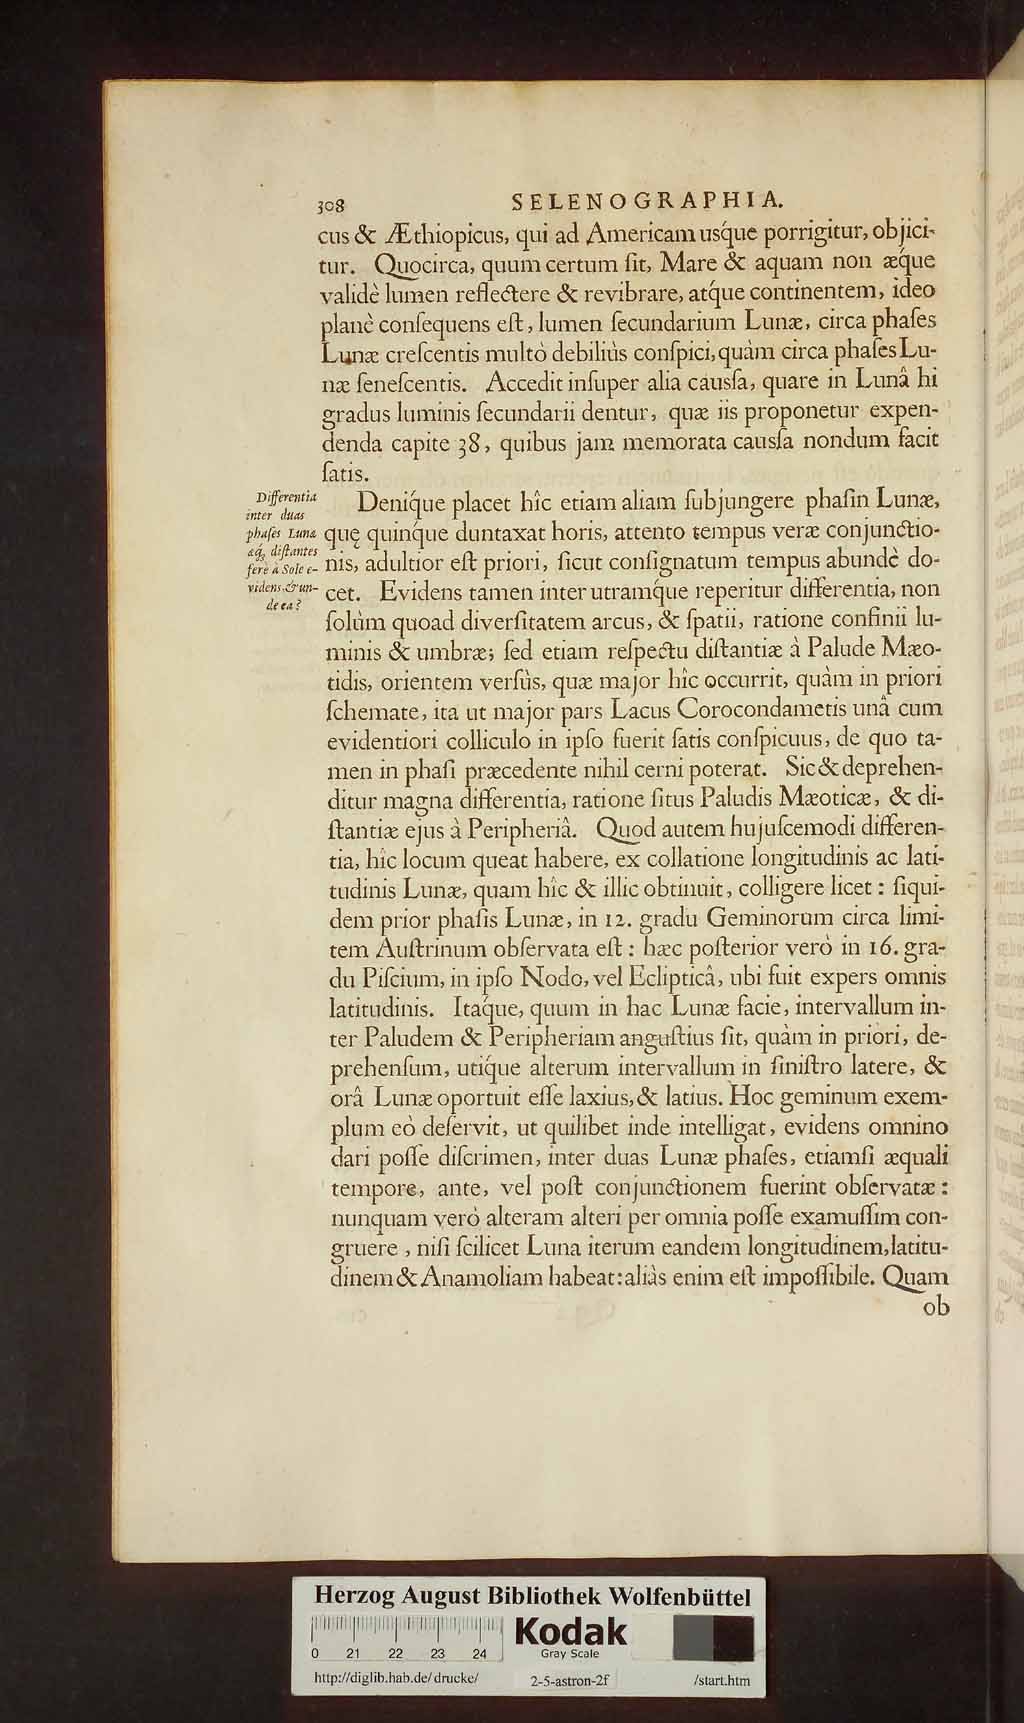 308 SELENOGRAPHIA.
cus & Æthiopicus, qui ad Americam usq́ue porrigitur, objici-
tur. Quocirca, quum certum ſit, Mare & aquam non æq́ue
validè lumen reflectere & revibrare, atq́ue continentem, ideo
planè conſequens eſt, lumen ſecundarium Lunæ, circa phaſes
Lunæ creſcentis multò debiliùs conſpici, quàm circa phaſes Lu-
næ ſeneſcentis. Accedit inſuper alia cauſsa, quare in Lunâ hi
gradus luminis ſecundarii dentur, quæ iis proponetur expen-
denda capite 38, quibus jam memorata cauſsa nondum facit
ſatis.
Differentia
inter duas
phaſes Lunæ
æq́; diſtantes
ferè à Sole e-
videns, & un-
de ea?
Deniq́ue placet hîc etiam aliam ſubjungere phaſin Lunæ,
quę quinq́ue duntaxat horis, attento tempus veræ conjunctio-
nis, adultior eſt priori, ſicut conſignatum tempus abundè do-
cet. Evidens tamen inter utramq́ue reperitur differentia, non
ſolùm quoad diverſitatem arcus, & ſpatii, ratione confinii lu-
minis & umbræ; ſed etiam reſpectu diſtantiæ à Palude Mæo-
tidis, orientem verſùs, quæ major hîc occurrit, quàm in priori
ſchemate, ita ut major pars Lacus Corocondametis unâ cum
evidentiori colliculo in ipſo fuerit ſatis conſpicuus, de quo ta-
men in phaſi præcedente nihil cerni poterat. Sic & deprehen-
ditur magna differentia, ratione ſitus Paludis Mæoticæ, & di-
ſtantiæ ejus à Peripheriâ. Quod autem hujuſcemodi differen-
tia, hîc locum queat habere, ex collatione longitudinis ac lati-
tudinis Lunæ, quam hîc & illic obtinuit, colligere licet : ſiqui-
dem prior phaſis Lunæ, in 12. gradu Geminorum circa limi-
tem Auſtrinum obſervata eſt : hæc poſterior verò in 16. gra-
du Piſcium, in ipſo Nodo, vel Eclipticâ, ubi fuit expers omnis
latitudinis. Itaq́ue, quum in hac Lunæ facie, intervallum in-
ter Paludem & Peripheriam anguſtius ſit, quàm in priori, de-
prehenſum, utiq́ue alterum intervallum in ſiniſtro latere, &
orâ Lunæ oportuit eſſe laxius, & latius. Hoc geminum exem-
plum eò deſervit, ut quilibet inde intelligat, evidens omnino
dari poſſe diſcrimen, inter duas Lunæ phaſes, etiamſi æquali
tempore, ante, vel poſt conjunctionem fuerint obſervatæ :
nunquam verò alteram alteri per omnia poſſe examuſſim con-
gruere , niſi ſcilicet Luna iterum eandem longitudinem, latitu-
dinem & Anamoliam habeat: aliàs enim eſt impoſſibile. Quam
ob
Herzog August Bibliothek Wolfenbüttel
Kodak
Gray Scale
0 21 22 23 24
http://diglib.hab.de/drucke/ 2-5-astron-2f /start.htm